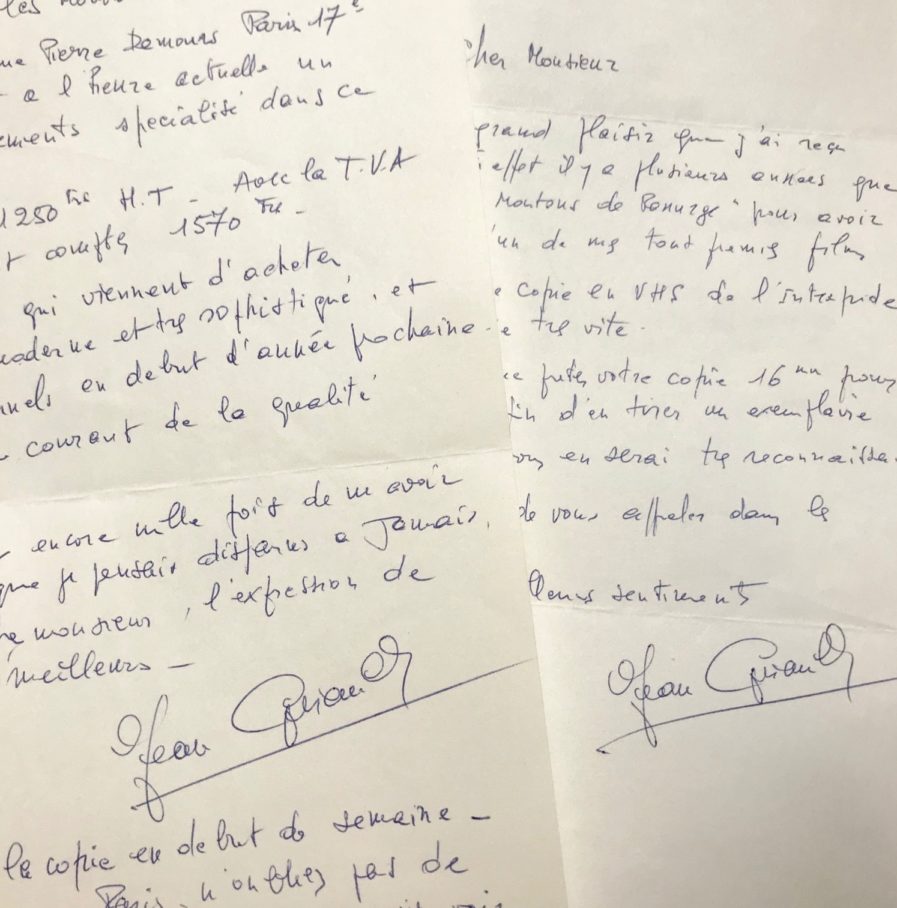 les
Pierre Demours Paris 17e
a l'heure actuelle un
ements spécialisé dans ce
1250 Frs H.T - Avec la T.V.A
t compte 1570 Frs -
qui viennent d'acheter
moderne et très sophistiqué, et
nnels en debut d'année prochaine -
courant de la qualité
encore mille fois de m'avoir
que je pensais disparus a Jamais,
monsieur, l'expression de
meilleurs -
Jean Girault
la copie en debut de semaine -
Paris, n'oubliez pas de
Cher Monsieur
grand plaisir que j'ai reçu
effet il y a plusieurs années que
Moutons de Panurge" pour avoir
un de mes tout premiers films
copie en VHS de l'intrépide
très vite.
votre copie 16 mm pour
fin d'en tirer un exemplaire
vous en serai très reconnaissa
de vous appeler dans les
lleurs sentiments
Jean Girault